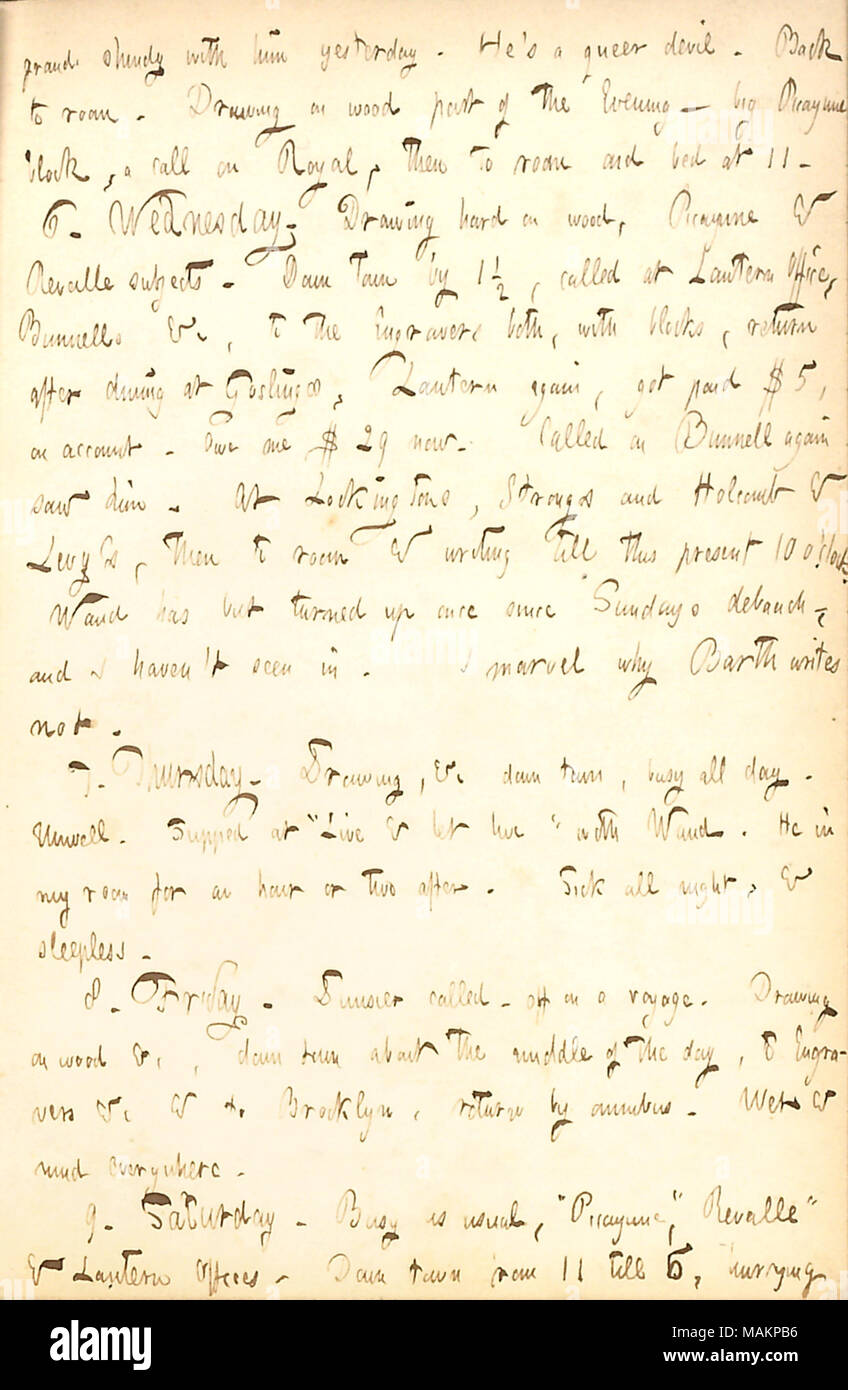 grand shindy with him yesterday. He's a queer devil. Back
to room. Drawing on wood part of the Evening — big Picayune
block, a call on Royal, then to room and bed at 11.
6. Wednesday. Drawing hard on wood, Picayune &
Revalle subjects. Down town by 1 ½, called at Lantern Office,
Bunnells &c, to the Engravers both, with blocks, return
after dining at Goslings, Lantern again, got paid $5,
on account. Owe me $29 now. Called on Bunnell again
saw him. At Lockingtons, Strongs and Holcomb &
Levys, then to room & writing till this present 10 o'clock.
Waud has but turned up once since Sundays debauch,
and I haven't seen in. I marvel why Barth writes
not.
7. Thursday. Drawing, &c down town, busy all day.
Unwell. Supped at "Live & let live" with Waud. He in
my room for an hour or two after. Sick all night, &
sleepless.
8. Friday. called. off on a voyage. Drawing
on wood &c, down town about the middle of the day, to Engra-
vers &c & to Brooklyn, return by omnibus. Wet &
mud everywhere.
9. Saturday. Busy as usual, "Picayune," Revalle"
& Lantern Offices. Down town from 11 till 5, hurrying
alamy
Image ID: MAKPB6
www.alamy.com